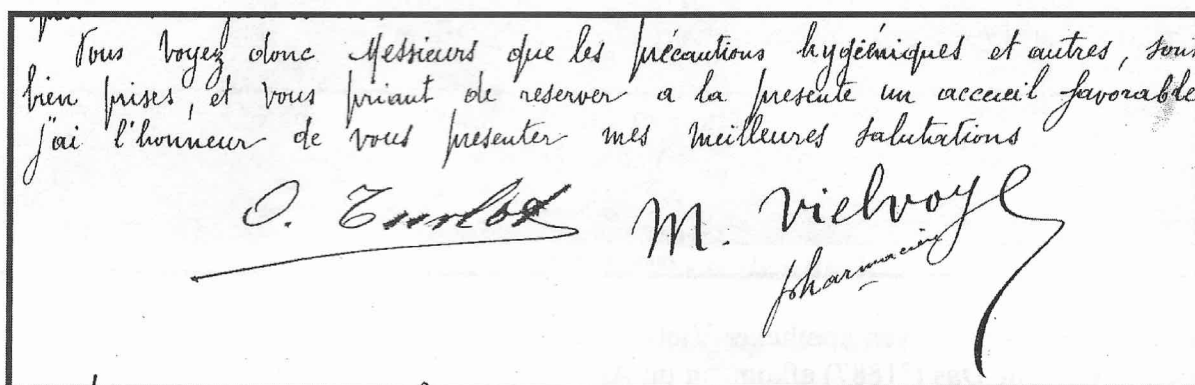 Vous voyez donc Messieurs que les précautions hygiéniques et autres, sont
bien prises, et vous priant de reserver a la presente un accueil favorable
j'ai l'honneur de vous presenter mes meilleures salutations
O. Turlot
M. Vielvoye
pharmacien